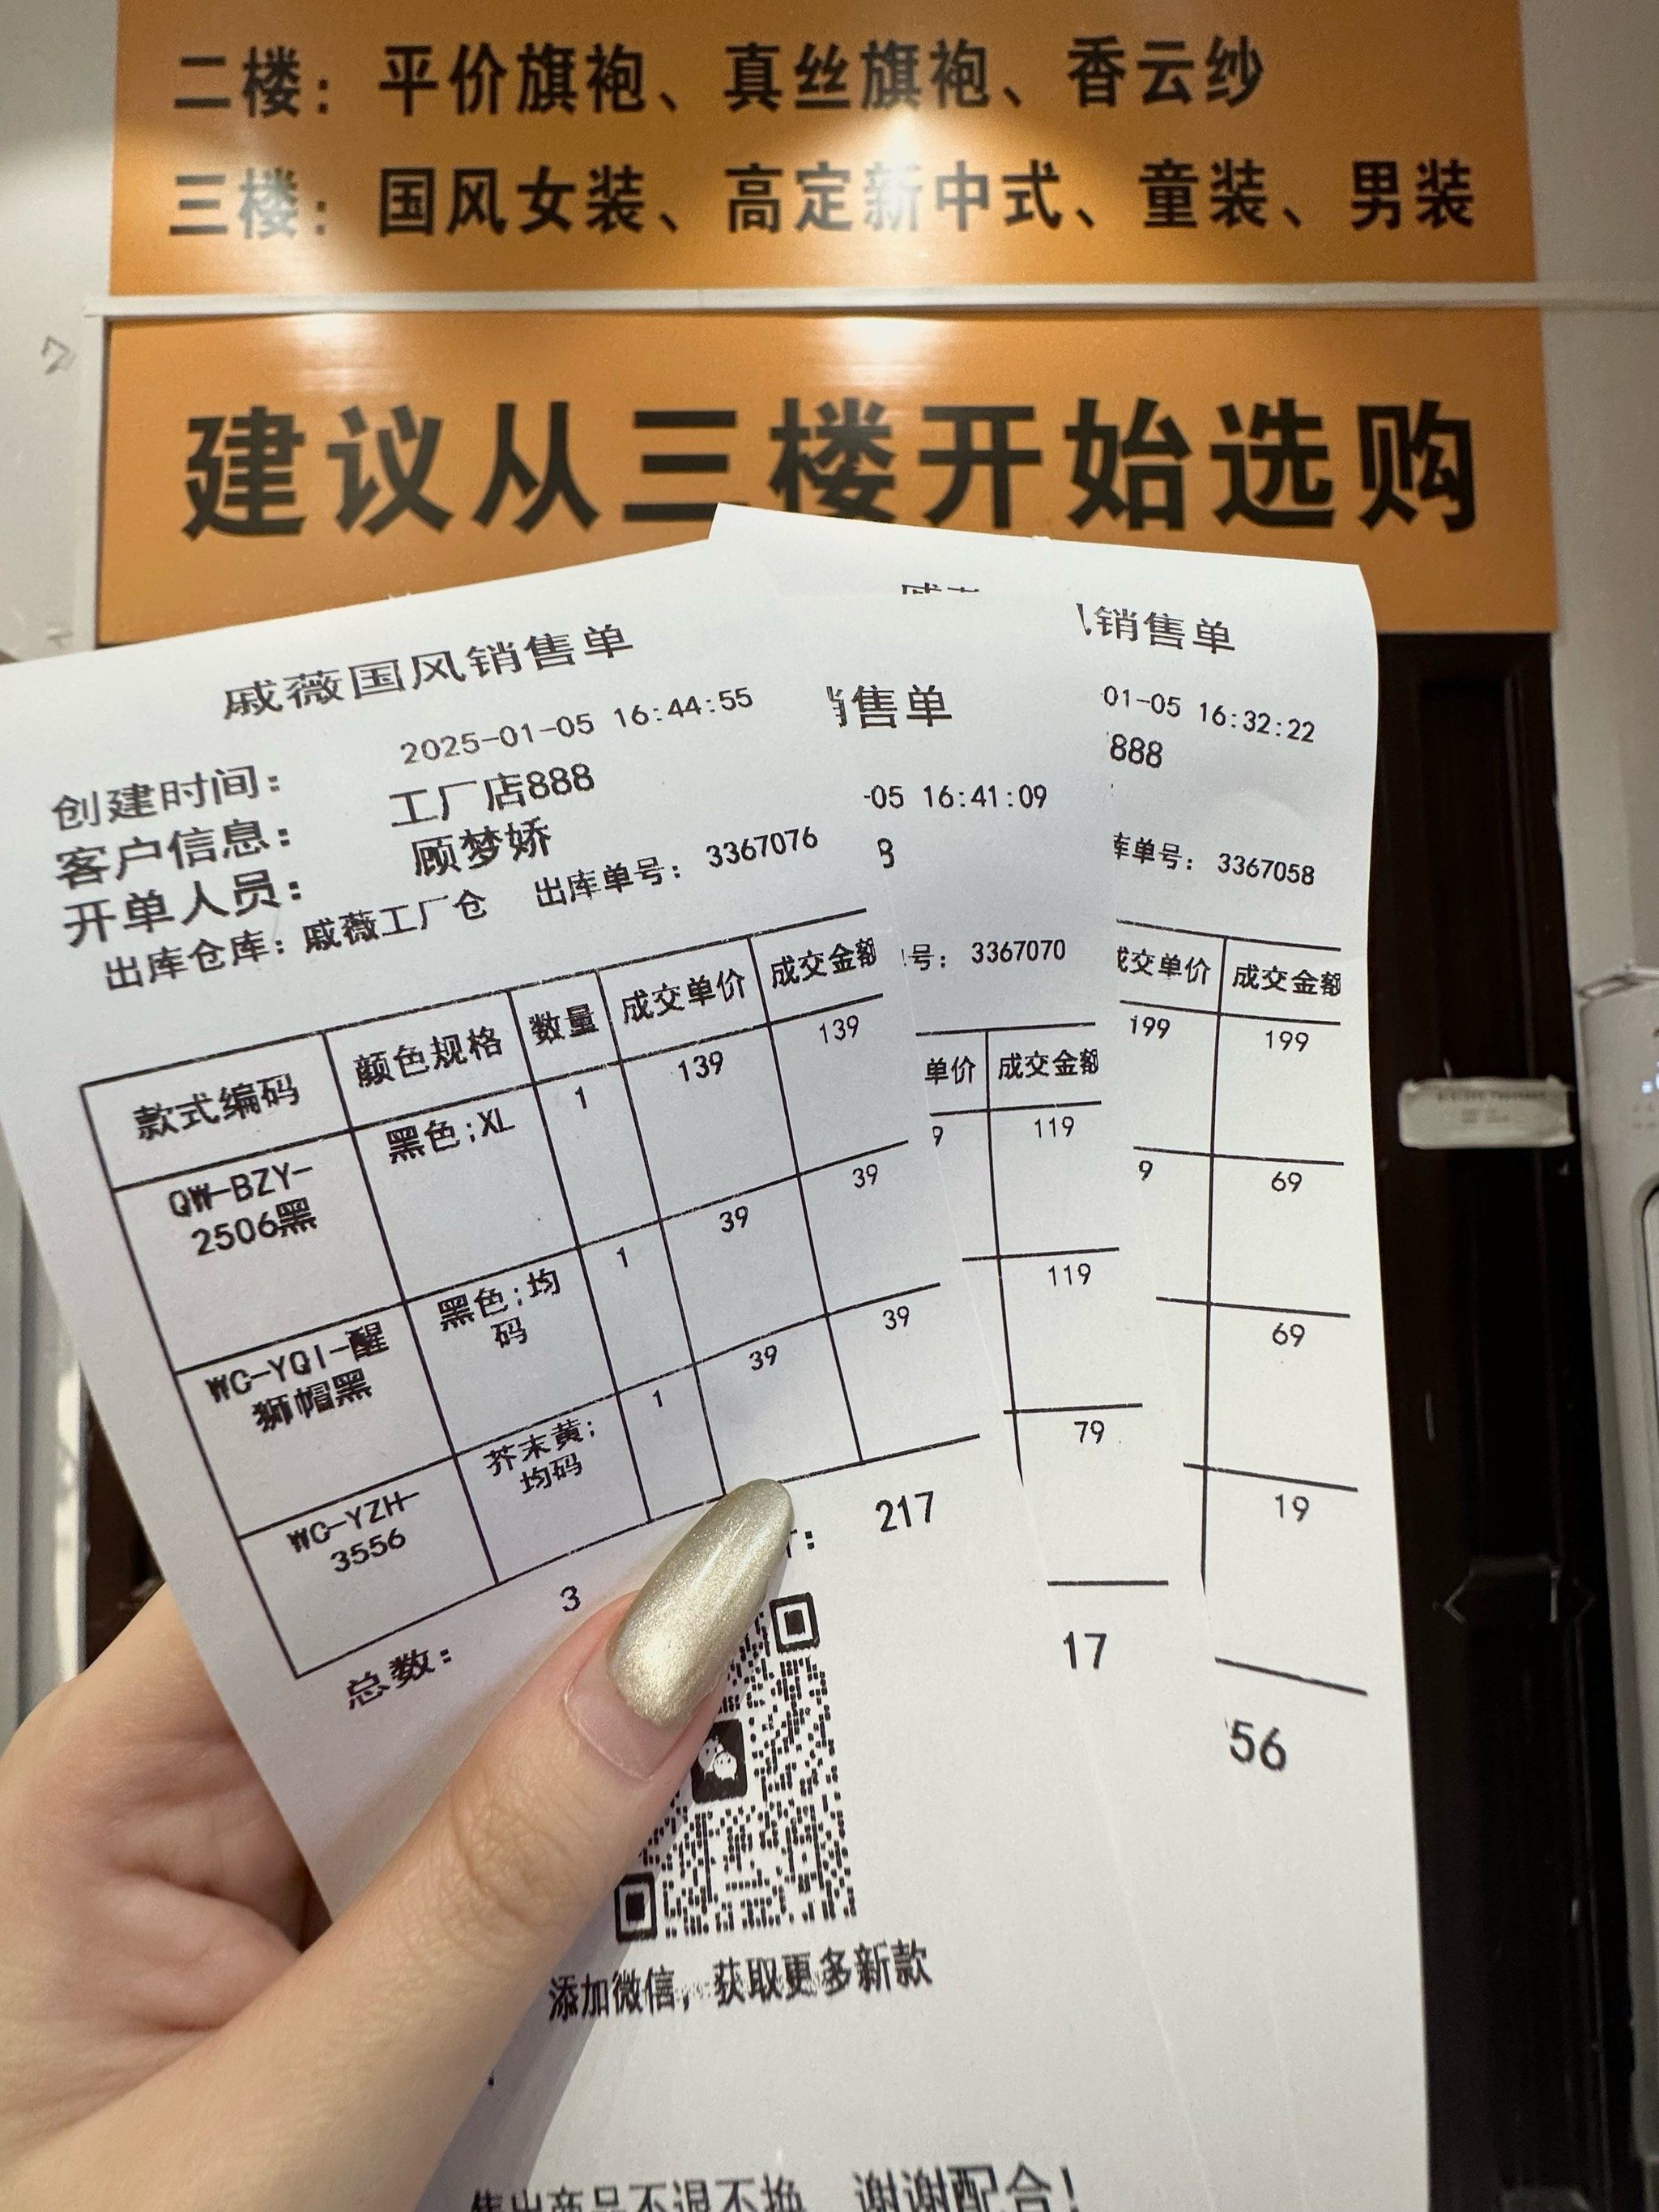 二楼：平价旗袍、真丝旗袍、香云纱
三楼：国风女装、高定新中式、童装、男装
建议从三楼开始选购
戚薇国风销售单
创建时间： 2025-01-05 16:44:55
客户信息： 工厂店888
开单人员： 顾梦娇
出库仓库：戚薇工厂仓 出库单号：3367076
款式编码 颜色规格 数量 成交单价 成交金额
QW-BZY-2506黑 黑色;XL 1 139 139
WC-YQI-醒狮帽黑 黑色;均码 1 39 39
WC-YZH-3556 芥末黄;均码 1 39 39
总数： 3 217
添加微信，获取更多新款
售出商品不退不换 谢谢配合！
售单
-05 16:41:09
8
号：3367070
单价 成交金额
9 119
119
79
17
销售单
01-05 16:32:22
888
库单号：3367058
成交单价 成交金额
199 199
9 69
69
19
56